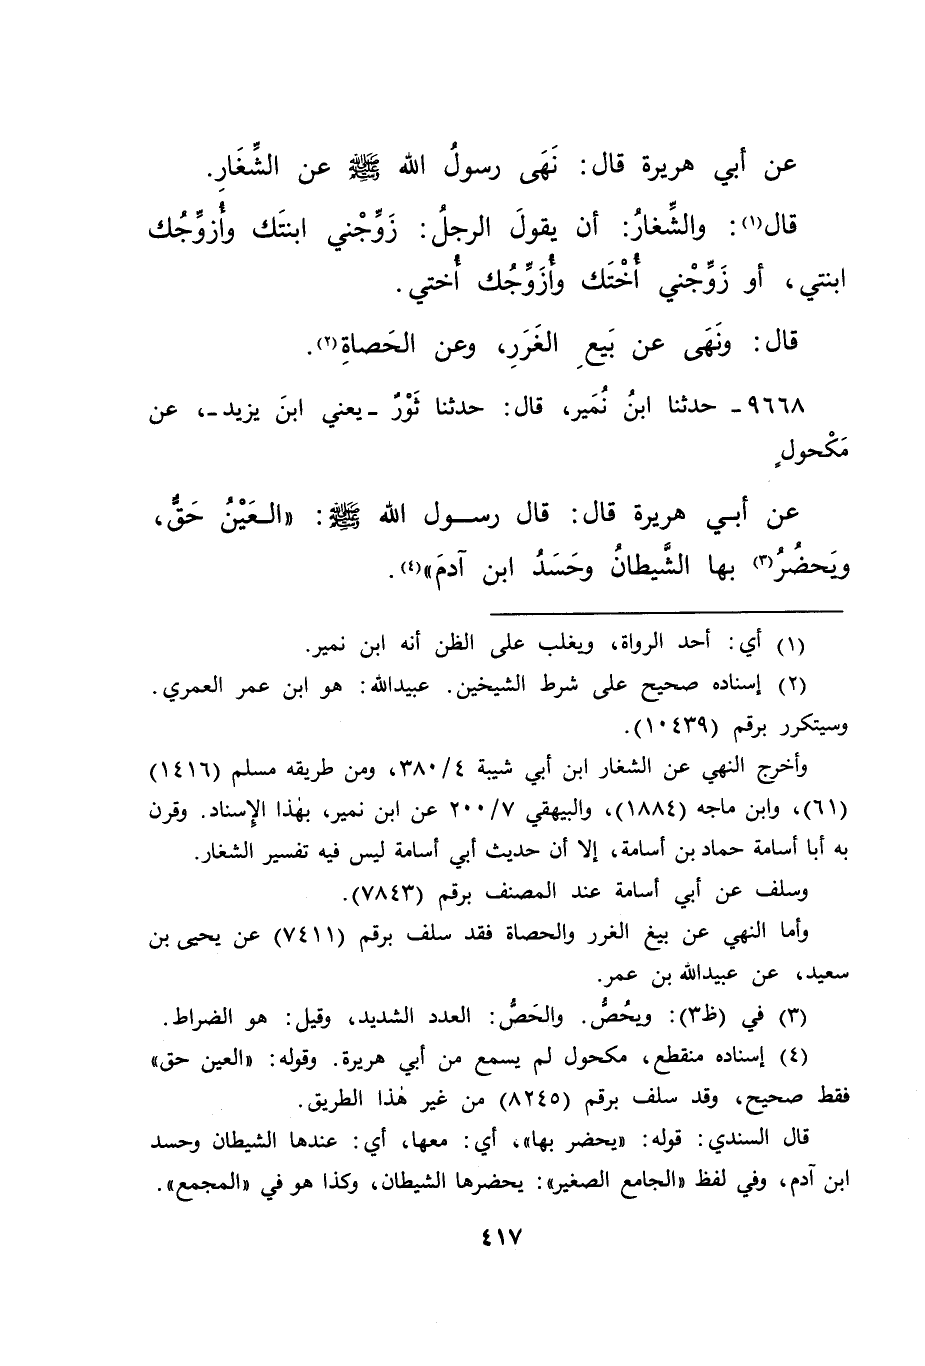 عن أبي هريرة قال: نَهَى رسولُ الله ﷺ عن الشِّغَارِ.
قال(١): والشِّغارُ: أن يقولَ الرجلُ: زَوِّجْني ابنتَك وأُزوِّجُك
ابنتي، أو زَوِّجْني أُخْتَك وأُزَوِّجُك أُختي.
قال: ونَهَى عن بَيعِ الغَرَرِ، وعن الحَصاةِ(٢).
٩٦٦٨ـ حدثنا ابنُ نُمَير، قال: حدثنا ثَوْرٌ ـ يعني ابنَ يزيد ـ، عن
مَكْحولٍ
عن أبي هريرة قال: قال رسول الله ﷺ: «العَيْنُ حَقٌّ،
ويَحضُرُ(٣) بها الشَّيطانُ وحَسَدُ ابن آدمَ»(٤).
(١) أي: أحد الرواة، ويغلب على الظن أنه ابن نمير.
(٢) إسناده صحيح على شرط الشيخين. عبيدالله: هو ابن عمر العمري.
وسيتكرر برقم (١٠٤٣٩).
وأخرج النهي عن الشغار ابن أبي شيبة ٣٨٠/٤، ومن طريقه مسلم (١٤١٦)
(٦١)، وابن ماجه (١٨٨٤)، والبيهقي ٢٠٠/٧ عن ابن نمير، بهٰذا الإسناد. وقرن
به أبا أسامة حماد بن أسامة، إلا أن حديث أبي أسامة ليس فيه تفسير الشغار.
وسلف عن أبي أسامة عند المصنف برقم (٧٨٤٣).
وأما النهي عن بيغ الغرر والحصاة فقد سلف برقم (٧٤١١) عن يحيى بن
سعيد، عن عبيدالله بن عمر.
(٣) في (ظ٣): ويحُصُّ. والحَصُّ: العدد الشديد، وقيل: هو الضراط.
(٤) إسناده منقطع، مكحول لم يسمع من أبي هريرة. وقوله: «العين حق»
فقط صحيح، وقد سلف برقم (٨٢٤٥) من غير هٰذا الطريق.
قال السندي: قوله: «يحضر بها»، أي: معها، أي: عندها الشيطان وحسد
ابن آدم، وفي لفظ «الجامع الصغير»: يحضرها الشيطان، وكذا هو في «المجمع».
٤١٧